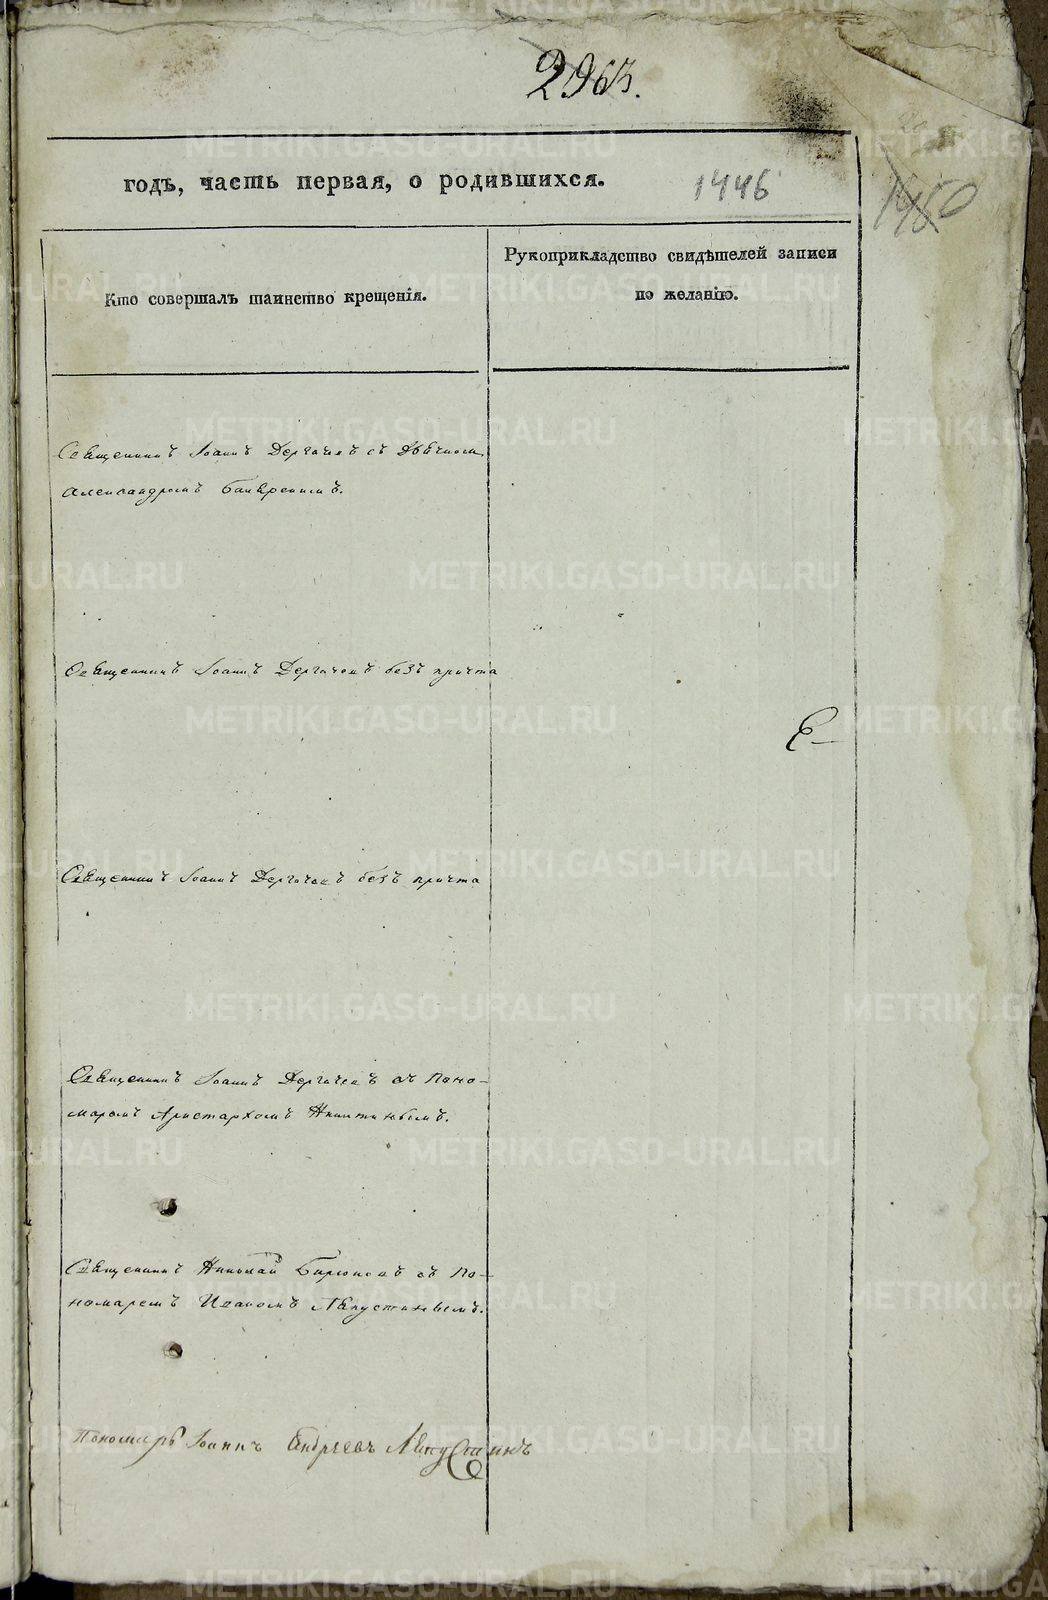 2963.
годъ, часть первая, о родившихся.
1446
1450
Кто совершалъ таинство крещенія.
Рукоприкладство свидѣтелей записи
по желанію.
Священникъ Іоаннъ Дергачевъ съ
Александромъ
Священникъ Іоаннъ Дергачевъ безъ причта
Священникъ Іоаннъ Дергачевъ безъ причта
Священникъ Іоаннъ Дергачевъ съ Поно-
маремъ Аристархомъ Никитинымъ.
Священникъ Николай Бирюковъ съ По-
номаремъ Иваномъ
Пономарь Іоаннъ Андреевъ
METRIKI.GASO-URAL.RU